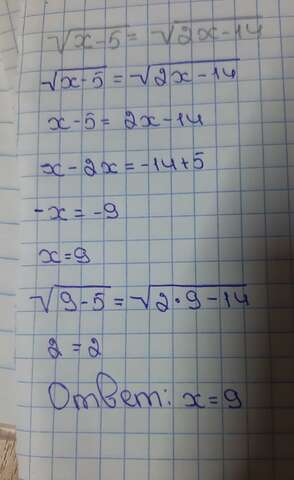 √x-5 = √2x-14
√x-5 = √2x-14
x-5 = 2x-14
x-2x = -14+5
-x = -9
x=9
√9-5 = √2·9-14
2 = 2
Ответ: x=9